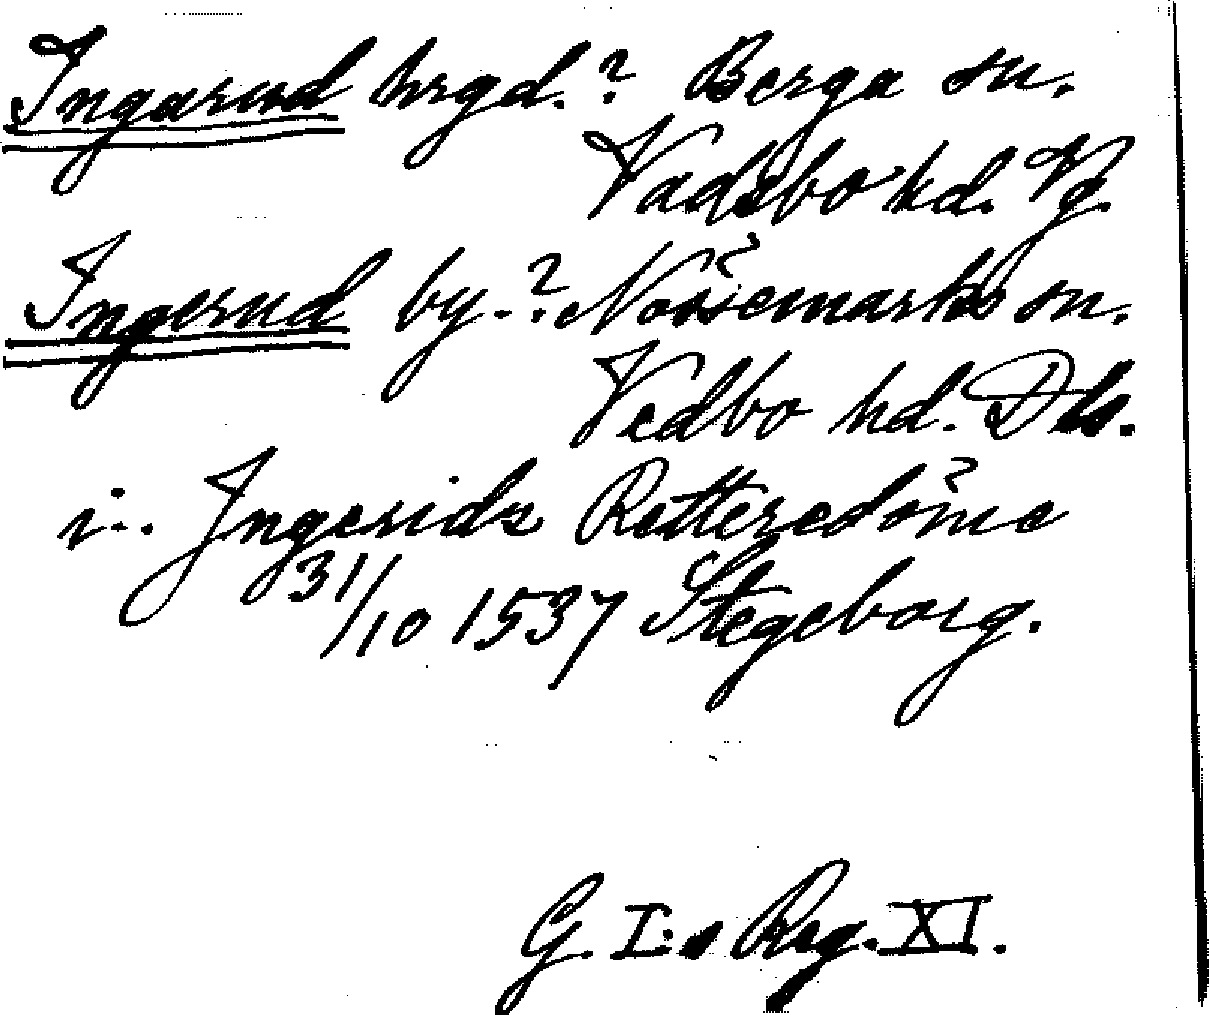 Ingarud hrgd.? Berga sn.
Vadsbo hd. Vg.
Ingerud by.? Nössemarks sn.
Vedbo hd. Dls.
i. Ingerids Retteredöme
31/10 1537 Stegeborg.
G. I:s Reg. XI.